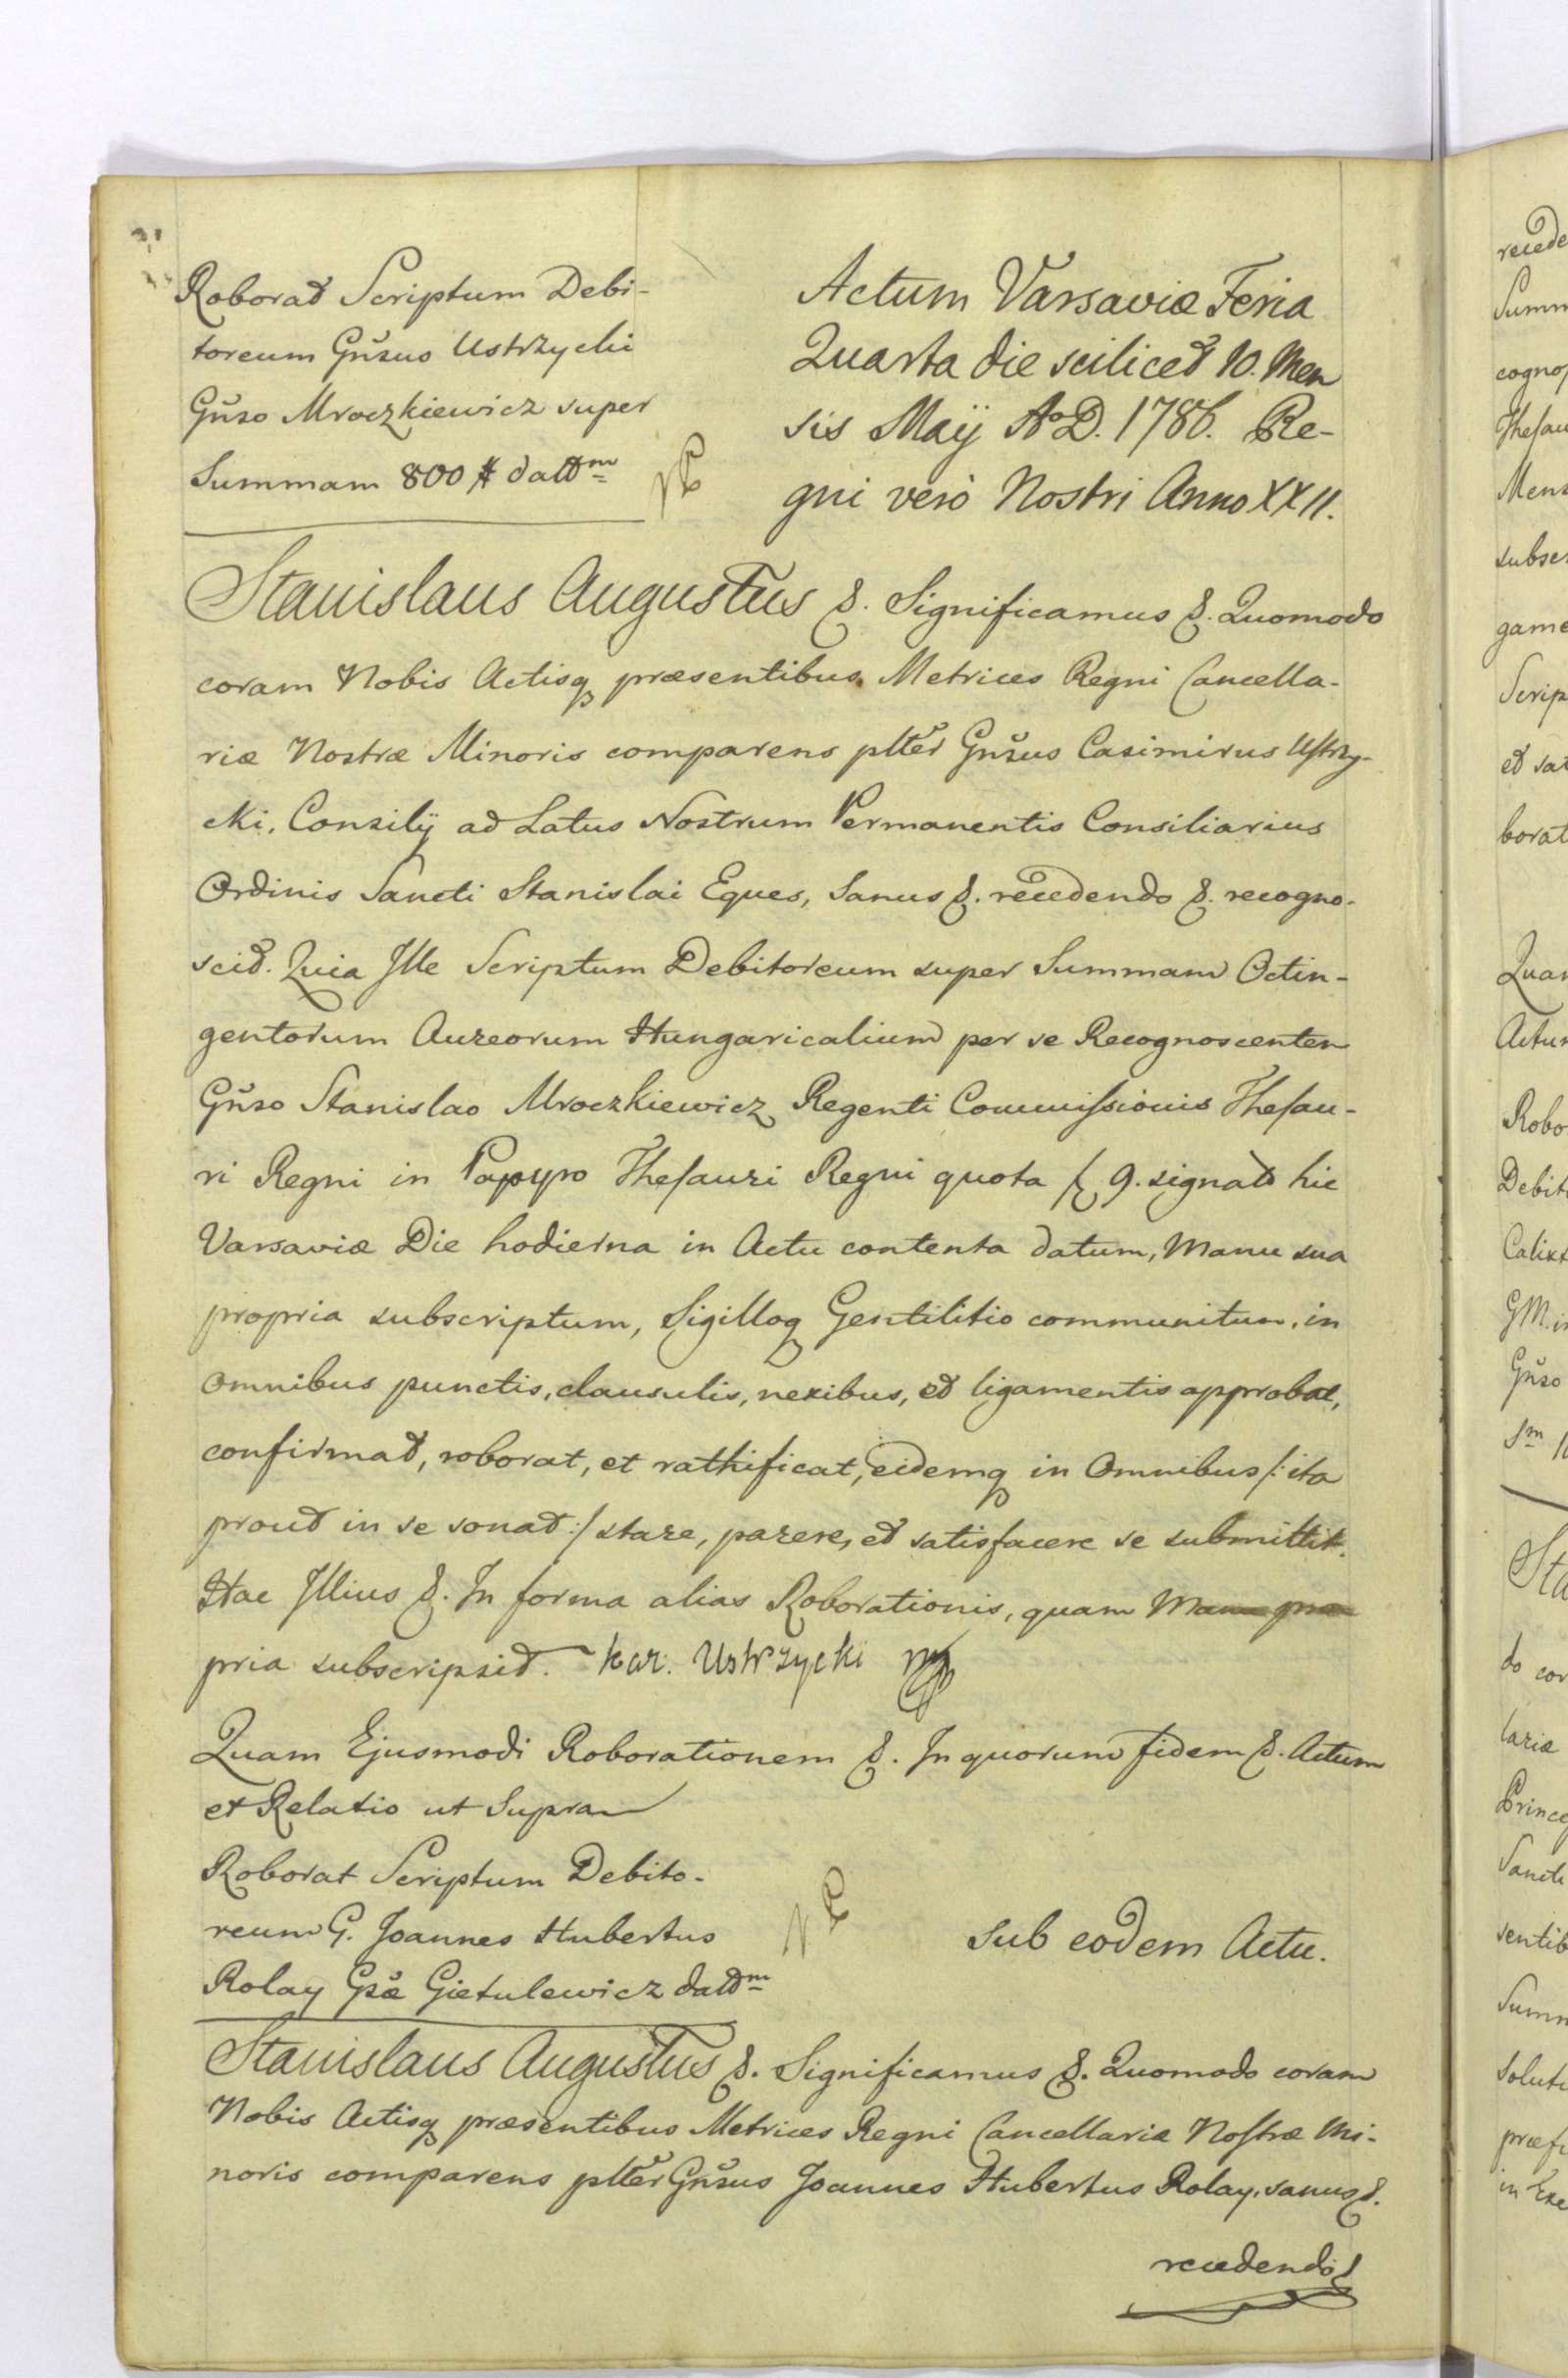 Roborat Scriptum Debi-
toreum Gnsus Ustrzycki
Gnso Mroczkiewicz super
Summam 800 # datt͞m
Actum Varsaviæ Feria
Quarta die scilicet 10. Men
sis Maij A͞oD. 1786. Re-
gni verò Nostri Anno XXII.
Stanislaus Augustus &. Significamus &. Quomodo
coram Nobis Actisq præsentibus Metrices Regni Cancella-
riæ Nostræ Minoris comparens plter Gnsus Casimirus Ustrzy-
cki, Consilij ad Latus Nostrum Permanentis Consiliarius
Ordinis Sancti Stanislai Eques, Sanus &. recedendo &. recogno-
scit. Quia Ille Scriptum Debitoreum super Summam Octin-
gentorum Aureorum Hungaricalium per se Recognoscentem
Gnso Stanislao Mroczkiewicz Regenti Commissionis Thesau-
ri Regni in Papyro Thesauri Regni quota f 9. signato hic
Varsaviæ Die hodierna in Actu contenta datum, Manu sua
propria subscriptum, Sigilloq Gentilitio communitum, in
Omnibus punctis, clausulis, nexibus, et ligamentis approbat,
confirmat, roborat, et rathificat, eidemq in Omnibus /: ita
prout in se sonat :/ stare, parere, et satisfacere se submittit.
Hac Illius &. In forma alias Roborationis, quam Manu pro
pria subscripsit. Kaz. Ustrzycki mp
Quam Ejusmodi Roborationem &. In quorum fidem &. Actum
et Relatio ut Supra
Roborat Scriptum Debito-
reum G. Joannes Hubertus
Rolay Gsæ Gietulewicz datt͞m
Sub eodem Actu.
Stanislaus Augustus &. Significamus &. Quomodo coram
Nobis Actisq præsentibus Metrices Regni Cancellariæ Nostræ Mi-
noris comparens plter Gnsus Joannes Hubertus Rolay, sanus &.
recedendo
recede
Summ
cogno
Thesau
Mens
subsc
game
Scrip
et sat
borat
Quar
Actu
Robo
Debit
Calix
GM. i
Gnso
S͞m
Sta
do cor
lariæ
Princ
Sancti
sentib
Summ
Solut
præf
in Exe